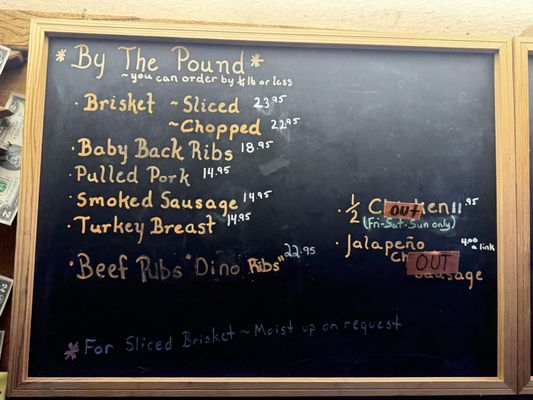 * By The Pound *
~you can order by ½ lb or less
· Brisket ~Sliced 23.95
~Chopped 22.95
· Baby Back Ribs 18.95
· Pulled Pork 14.95
· Smoked Sausage 14.95
· Turkey Breast 14.95
· Beef Ribs "Dino Ribs" 22.95
· ½ C OUT en 11.95
(Fri-Sat-Sun only)
· Jalapeño 4.00 a link
Ch OUT
Sausage
* For Sliced Brisket ~ Moist up on request